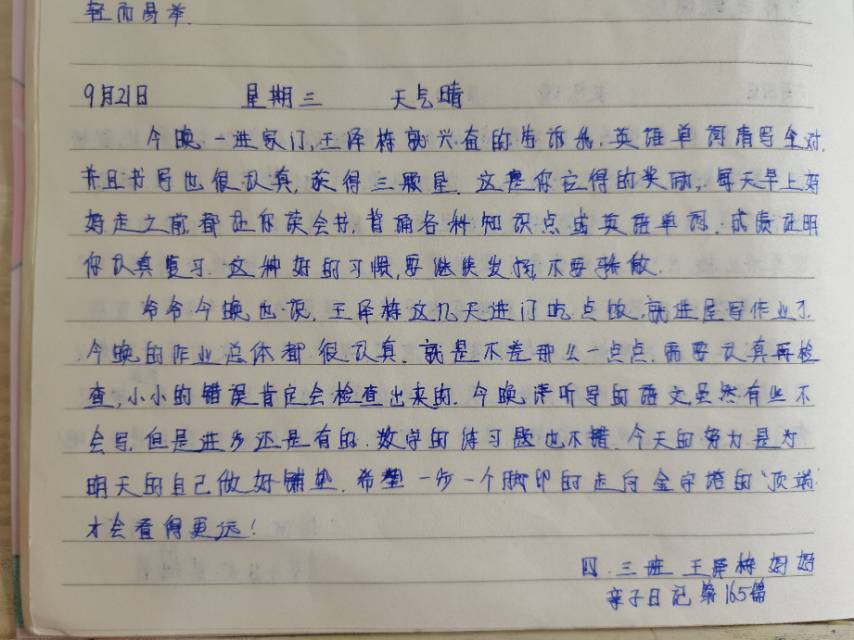 轻而易举.
9月21日 星期三 天气晴
今晚一进家门,王泽梓就兴奋的告诉我,英语单词清写全对,
并且书写也很认真,获得三颗星.这是你应得的奖励,每天早上妈
妈走之前都让你读会书,背诵各种知识点或英语单词,成绩证明
你认真复习.这种好的习惯,要继续发扬,不要骄傲.
爷爷今晚也说,王泽梓这几天进门吃点饭,就进屋写作业了.
今晚的作业总体都很认真.就是不差那么一点点.需要认真再检
查,小小的错误肯定会检查出来的.今晚课听写的语文虽然有些不
会写.但是进步还是有的.数学的练习题也不错.今天的努力是为
明天的自己做好铺垫.希望一步一个脚印的走向金字塔的顶端
才会看得更远!
四.三班 王泽梓妈妈
亲子日记第165篇